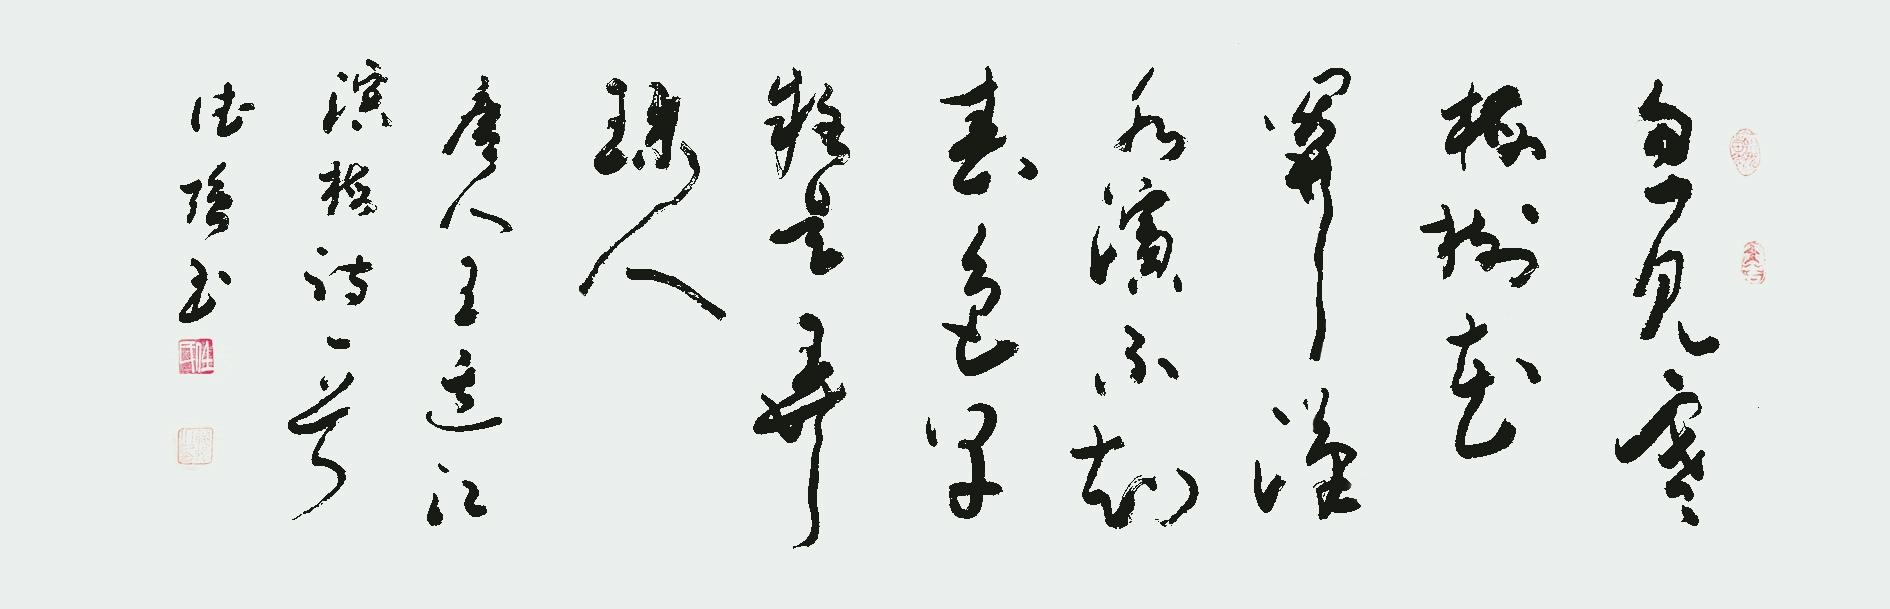 忽見寒
梅樹花
開漢
水濱不知
春色早
疑是弄
珠人
唐人王適江
濱梅詩一首
德強书